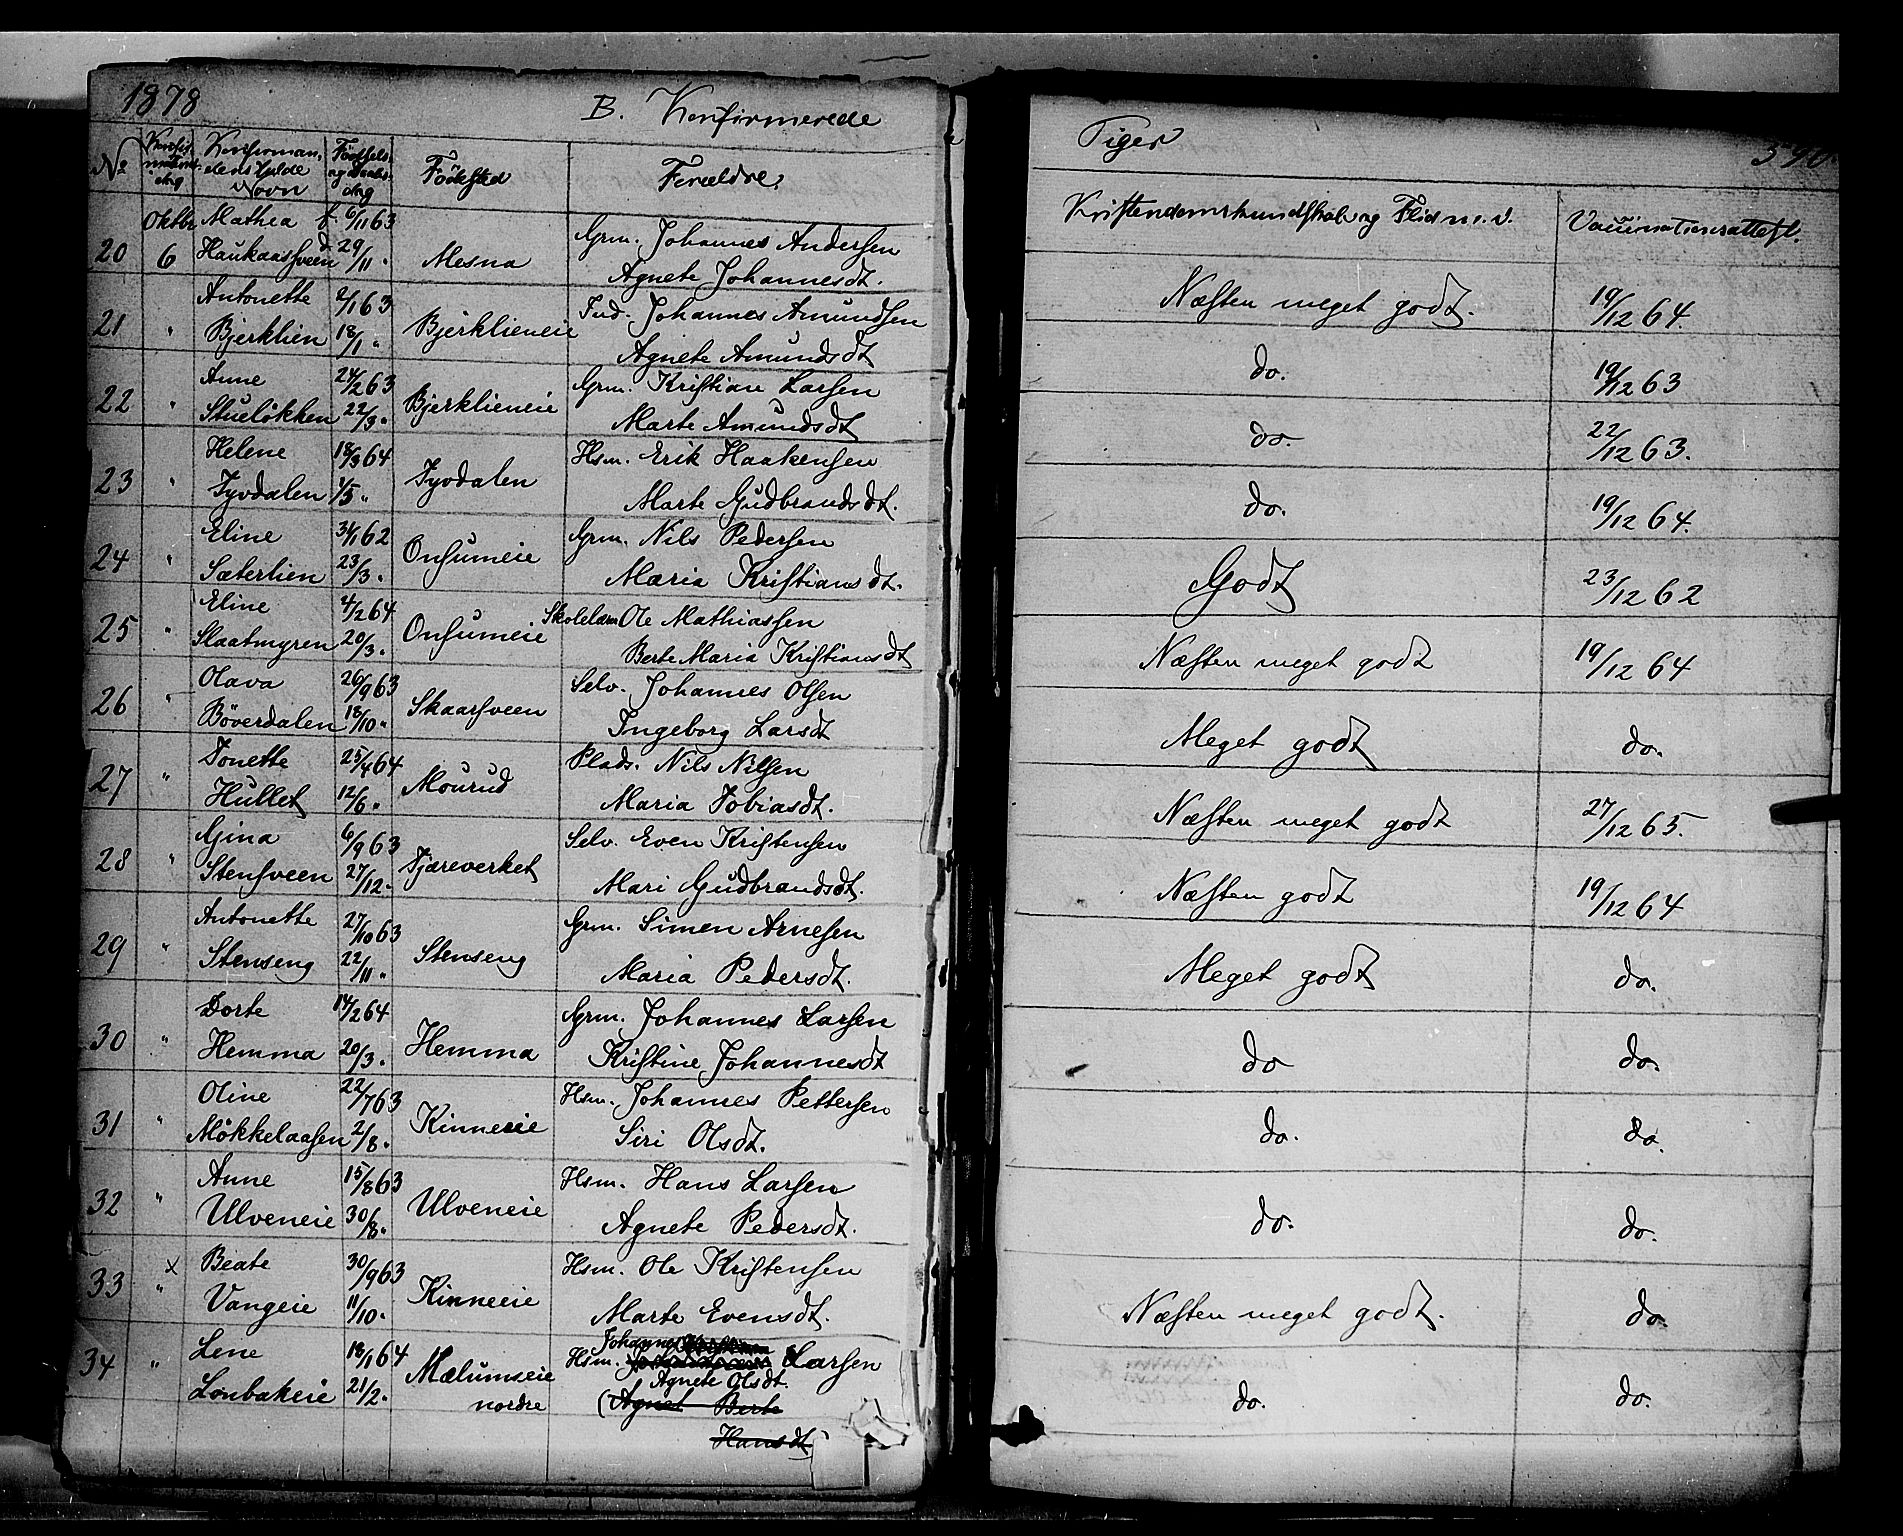 1878
B. Konfirmerede
Piger
No Konfirmationsdag Konfirmandens fulde Navn Fødsels og Daabsdag Födested Forældre. Kristendomskundskab og Flid m. v. Vaccinationsattest.
Oktbr Mathea f. 6/11 63 Grm. Johannes Andersen
20 6 Haukaassveen d. 29/11. Mesna Agnete Johannesdt. Næsten meget godt. 19/12 64.
Antonette 2/1 63 Ind. Johannes Amundsen
21 " Bjerklien 18/1 " Bjerklieneie Agnete Amundsdt do. 19/12 63
Anne 24/2 63 Grm. Kristian Larsen
22 " Stuelökken 22/3 " Bjerklieneie Marte Amundsdt do. 22/12 63.
Helene 18/3 64 Hsm. Erik Haakensen
23 " Tyvdalen 1/5 " Tyvdalen Marte Gudbrandsdt. do. 19/12 64.
Eline 31/1 62 Grm. Nils Pedersen
24 " Sæterlien 23/3 " Onsumeie Maria Kristiansdt. Godt 23/12 62
Eline 4/2 64 Skolelær Ole Mathiassen
25 " Slaatmyren 20/3 " Onsumeie Berte Maria Kristiansdt Næsten meget godt 19/12 64
Olava 26/9 63 Selv. Johannes Olsen
26 " Böverdalen 18/10 " Skaarsveen Ingeborg Larsdt Meget godt do.
Tonette 25/4 64 Plads. Nils Nilsen
27 " Hullet 12/6 " Mourud Maria Tobiasdt. Næsten meget godt 27/12 65.
Gina 6/9 63 Selv. Even Kristensen
28 " Stensveen 27/12 " Tjæreverket Mari Gudbrandsdt. Næsten godt 19/12 64
Antonette 27/10 63 Grm. Simen Arnesen
29 " Stenseng 22/11 " Stenseng Maria Pedersdt. Meget godt do.
Dorte 14/2 64 Grm. Johannes Larsen
30 " Hemma 20/3 " Hemma Kristine Johannesdt do do.
Oline 22/7 63 Hsm. Johannes Pettersen
31 " Mökkelaasen 2/8 " Kinneeie Siri Olsdt. do. do.
Anne 15/8 63 Hsm. Hans Larsen
32 " Ulveneie 30/8 " Ulveneie Agnete Pedersdt. do. do.
x Beate 30/9 63 Hsm. Ole Kristensen
33 " Vangeie 11/10 " Kinneeie Marte Evensdt. Næsten meget godt. do.
Johannes
Lene 18/1 64 Hsm. Larsen
34 " Lonbakeie 21/2 " Mælumseie Agnete Olsdt. do. do.
nordre (Agnet Berte
Hansdt)